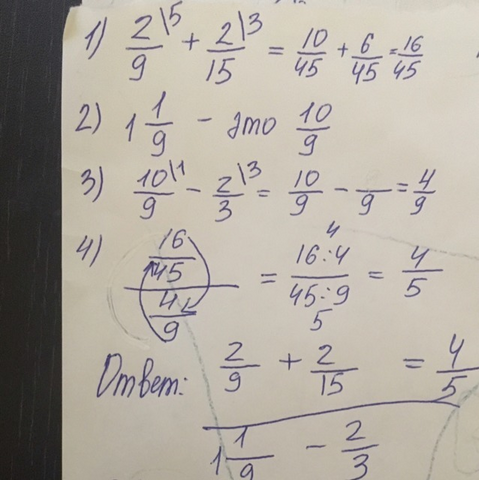 1) 2/9 \5 + 2/15 \3 = 10/45 + 6/45 = 16/45
2) 1 1/9 - это 10/9
3) 10/9 \1 - 2/3 \3 = 10/9 - /9 = 4/9
4) 16/45 / 4/9 = 16:4/45:9 4 5 = 4/5
Ответ: 2/9 + 2/15 / 1 1/9 - 2/3 = 4/5